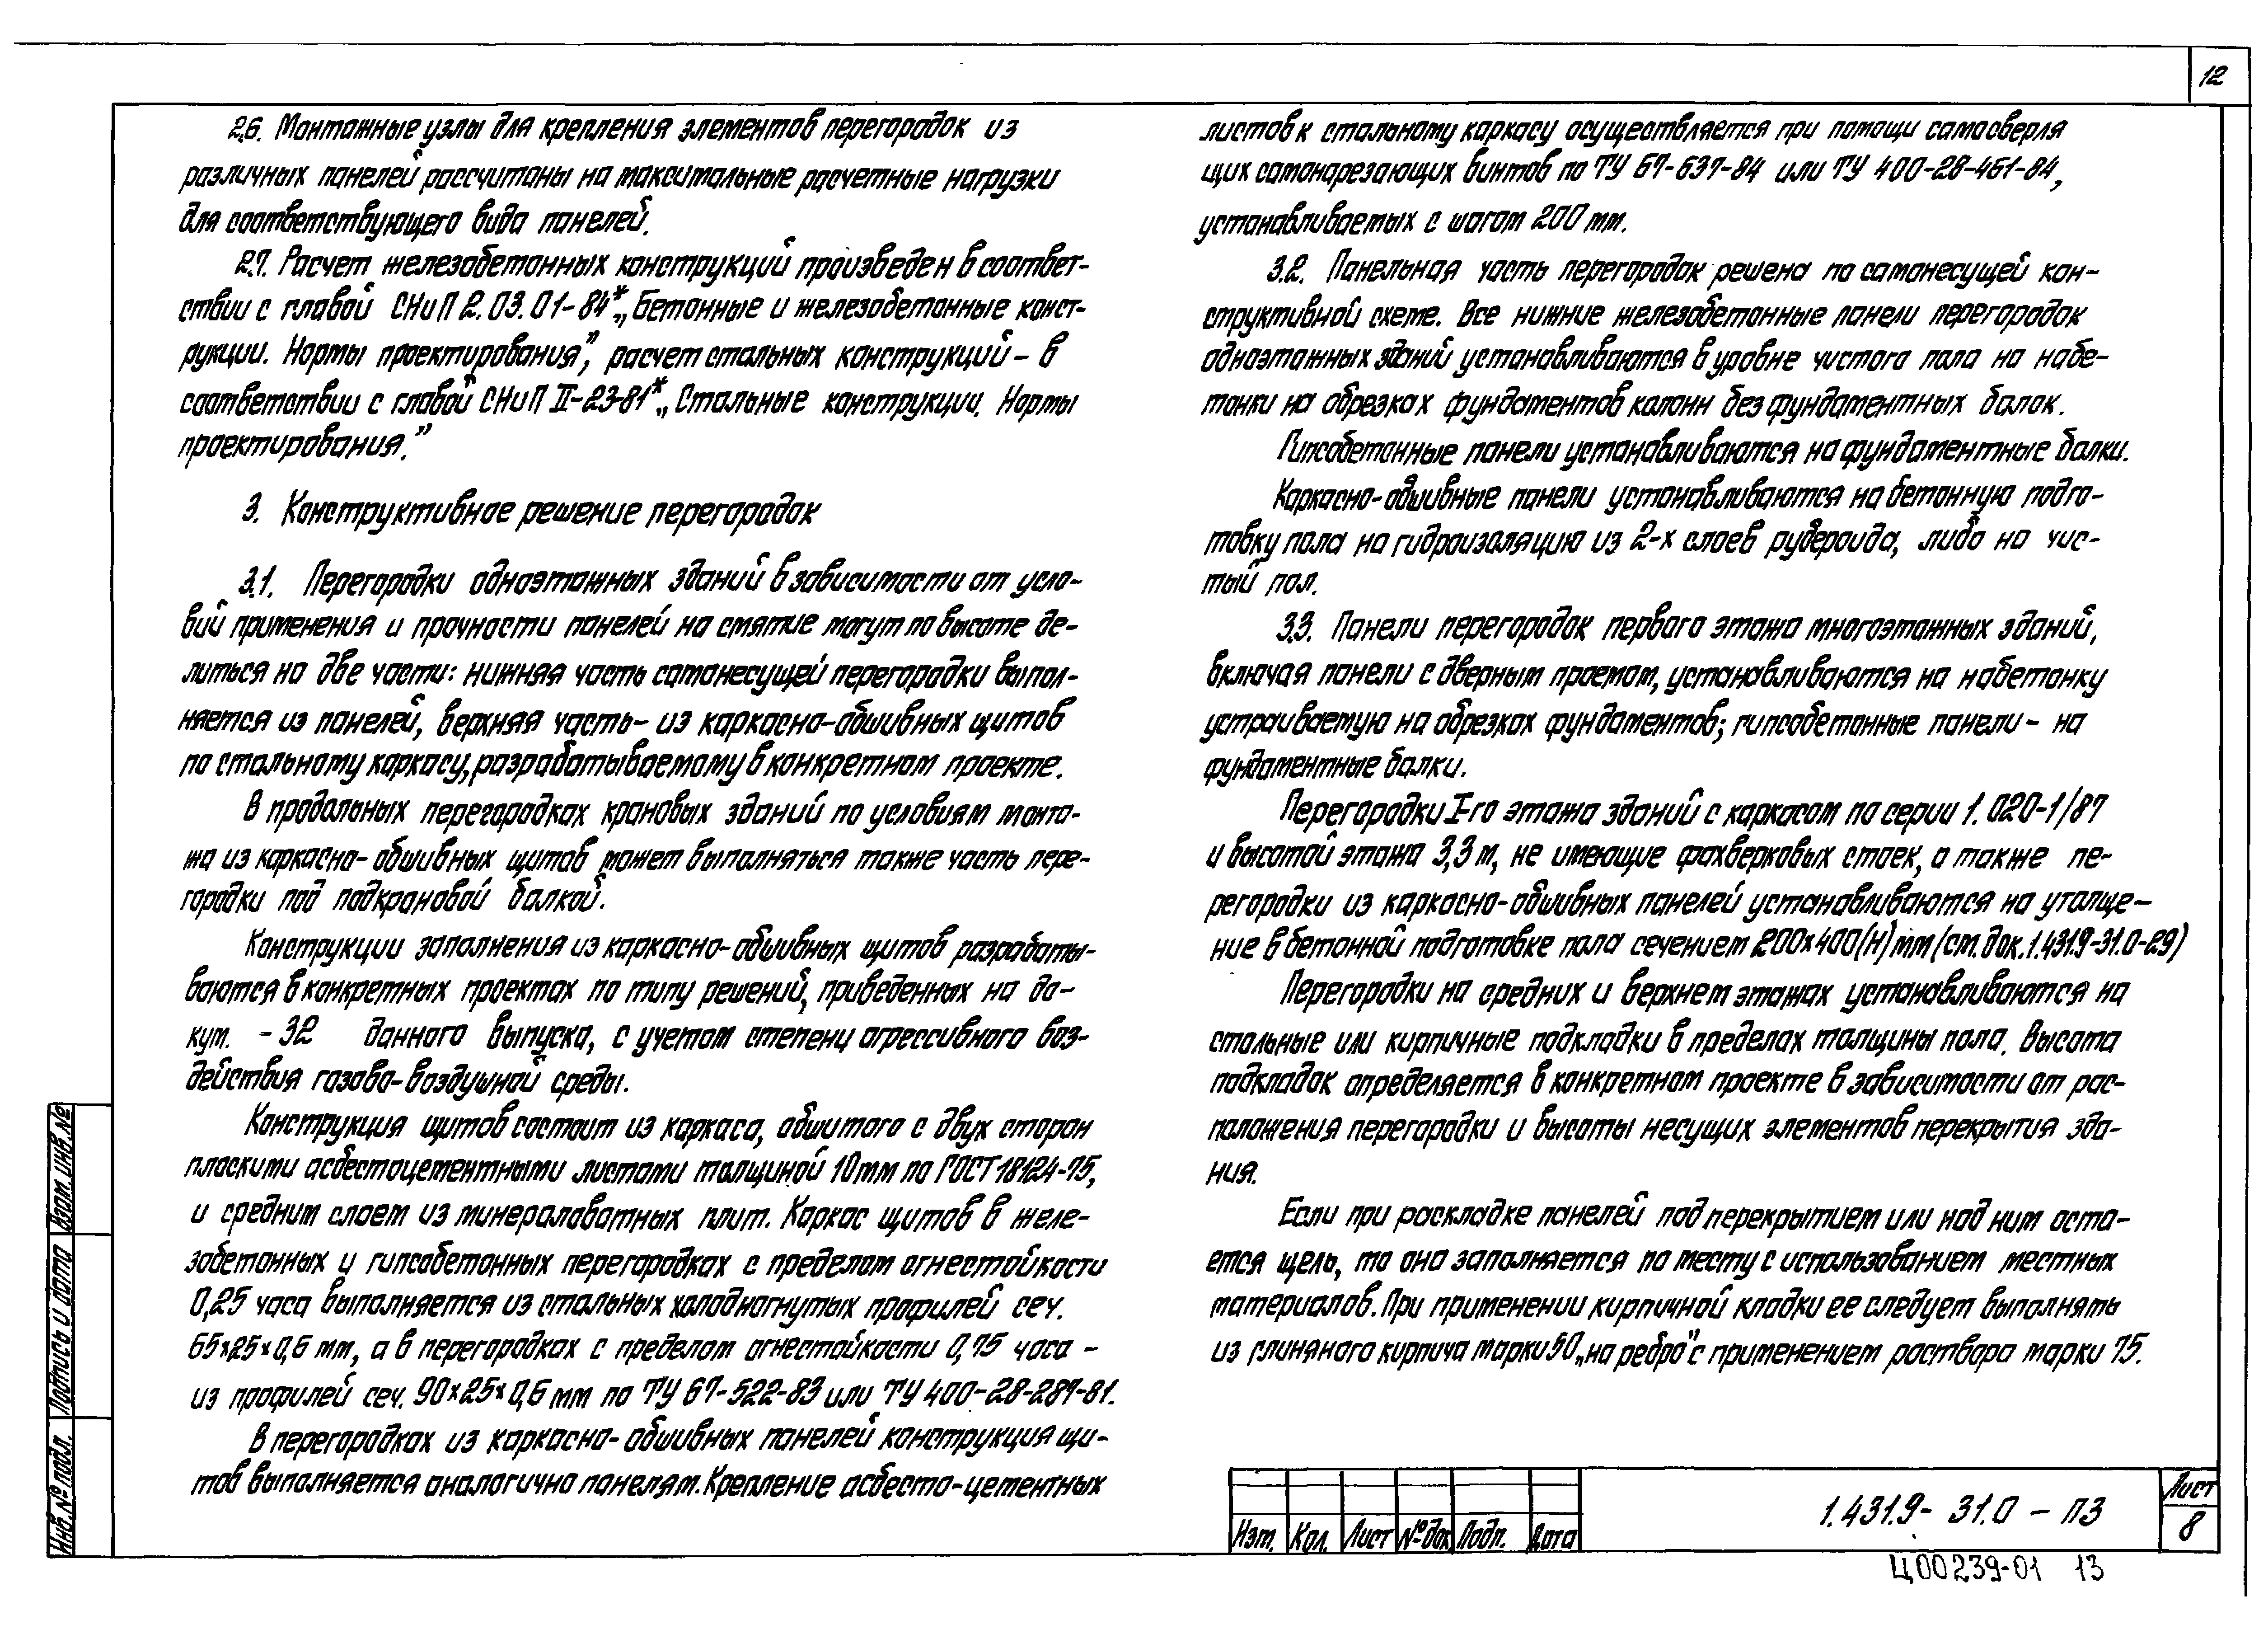 12
2.6. Монтажные узлы для крепления элементов перегородок из
различных панелей рассчитаны на максимальные расчетные нагрузки
для соответствующего вида панелей.
2.7. Расчет железобетонных конструкций произведен в соответ-
ствии с главой СНиП 2.03.01-84* „Бетонные и железобетонные конст-
рукции. Нормы проектирования”, расчет стальных конструкций – в
соответствии с главой СНиП II-23-81* „Стальные конструкции. Нормы
проектирования.”
3. Конструктивное решение перегородок
3.1. Перегородки одноэтажных зданий в зависимости от усло-
вий применения и прочности панелей на смятие могут по высоте де-
литься на две части: нижняя часть самонесущей перегородки выпол-
няется из панелей, верхняя часть – из каркасно-обшивных щитов
по стальному каркасу, разрабатываемому в конкретном проекте.
В продольных перегородках крановых зданий по условиям монта-
жа из каркасно-обшивных щитов может выполняться также часть пере-
городки под подкрановой балкой.
Конструкции заполнения из каркасно-обшивных щитов разрабаты-
ваются в конкретных проектах по типу решений, приведенных на до-
кум. - 32 данного выпуска, с учетом степени агрессивного воз-
действия газово-воздушной среды.
Конструкция щитов состоит из каркаса, обшитого с двух сторон
плоскими асбестоцементными листами толщиной 10 мм по ГОСТ 18124-75,
и средним слоем из минераловатных плит. Каркас щитов в желе-
зобетонных и гипсобетонных перегородках с пределом огнестойкости
0,25 часа выполняется из стальных холодногнутых профилей сеч.
65×25×0,6 мм, а в перегородках с пределом огнестойкости 0,75 часа –
из профилей сеч. 90×25×0,6 мм по ТУ 67-522-83 или ТУ 400-28-287-81.
В перегородках из каркасно-обшивных панелей конструкция щи-
тов выполняется аналогично панелям. Крепление асбесто-цементных
листов к стальному каркасу осуществляется при помощи самосверля
щих самонарезающих винтов по ТУ 67-637-84 или ТУ 400-28-461-84,
устанавливаемых с шагом 200 мм.
3.2. Панельная часть перегородок решена по самонесущей кон-
структивной схеме. Все нижние железобетонные панели перегородок
одноэтажных зданий устанавливаются в уровне чистого пола на набе-
тонки на обрезках фундаментов колонн без фундаментных балок.
Гипсобетонные панели устанавливаются на фундаментные балки.
Каркасно-обшивные панели устанавливаются на бетонную подго-
товку пола на гидроизоляцию из 2-х слоев рубероида, либо на чис-
тый пол.
3.3. Панели перегородок первого этажа многоэтажных зданий,
включая панели с дверным проемом, устанавливаются на набетонку
устраиваемую на обрезках фундаментов; гипсобетонные панели – на
фундаментные балки.
Перегородки I-го этажа зданий с каркасом по серии 1.020-1/87
и высотой этажа 3,3 м, не имеющие фахверковых стоек, а также пе-
регородки из каркасно-обшивных панелей устанавливаются на утолще-
ние в бетонной подготовке пола сечением 200×400(н) мм (см. док. 1.431.9-31.0-29)
Перегородки на средних и верхнем этажах устанавливаются на
стальные или кирпичные подкладки в пределах толщины пола. Высота
подкладок определяется в конкретном проекте в зависимости от рас-
положения перегородки и высоты несущих элементов перекрытия зда-
ния.
Если при раскладке панелей под перекрытием или над ним оста-
ется щель, то она заполняется по месту с использованием местных
материалов. При применении кирпичной кладки ее следует выполнять
из глиняного кирпича марки 50 „на ребро” с применением раствора марки 75.
Взам. инв. №
Подпись и дата
Инв. № подл.
Изм. Кол. Лист № док Подп. Дата
1.431.9- 31.0 - ПЗ
Лист
8
Ц00239-01 13